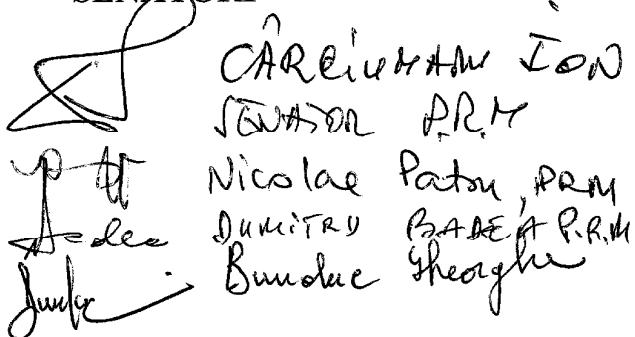 SENATORI
CÂRCIUMARU ION
SENATOR P.R.M
Nicolae Patru, PRM
Badea DUMITRU BADEA P.R.M
Bunduc Gheorghe